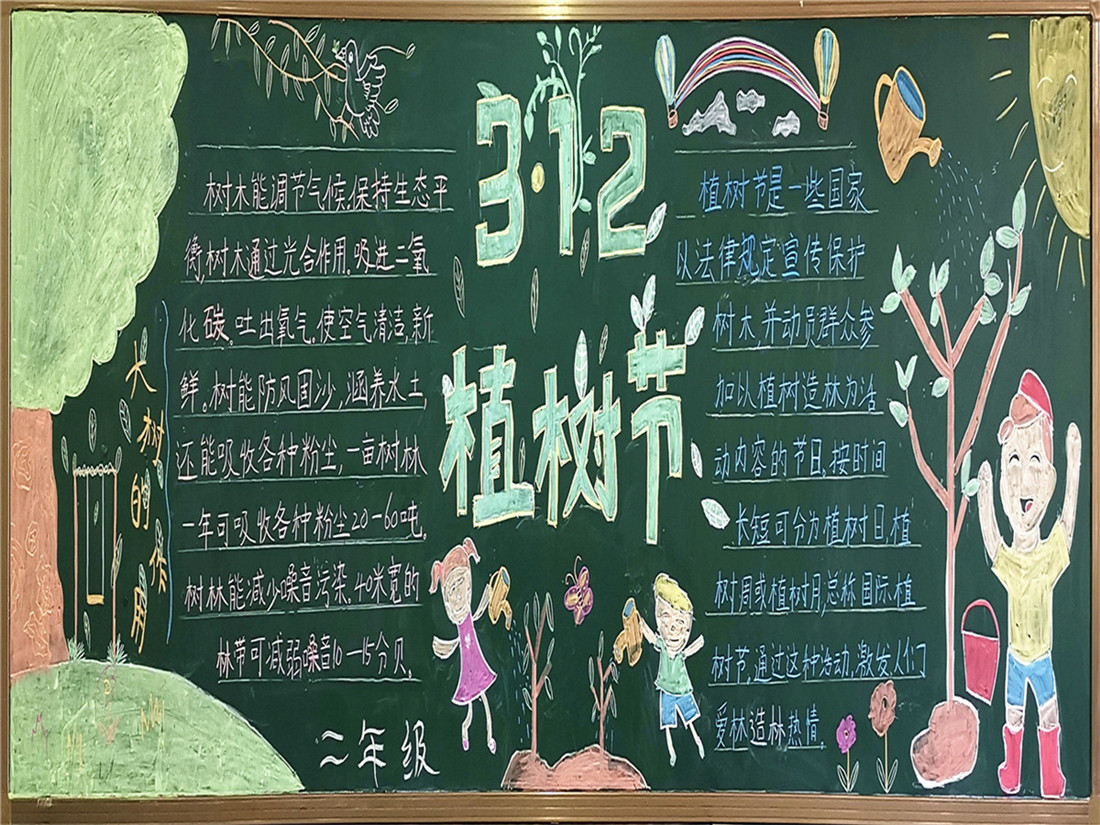 3·12
植树节
大树的保用
树木能调节气候,保持生态平
衡,树木通过光合作用,吸进二氧
化碳,吐出氧气,使空气清洁,新
鲜。树能防风固沙,涵养水土,
还能吸收各种粉尘,一亩树林
一年可吸收各种粉尘20-60吨,
树林能减少噪音污染,40米宽的
林带可减弱噪音10-15分贝。
二年级
植树节是一些国家
以法律规定宣传保护
树木,并动员群众参
加以植树造林为活
动内容的节日,按时间
长短可分为植树日,植
树周或植树月,总称国际植
树节,通过这种活动,激发人们
爱林造林热情。